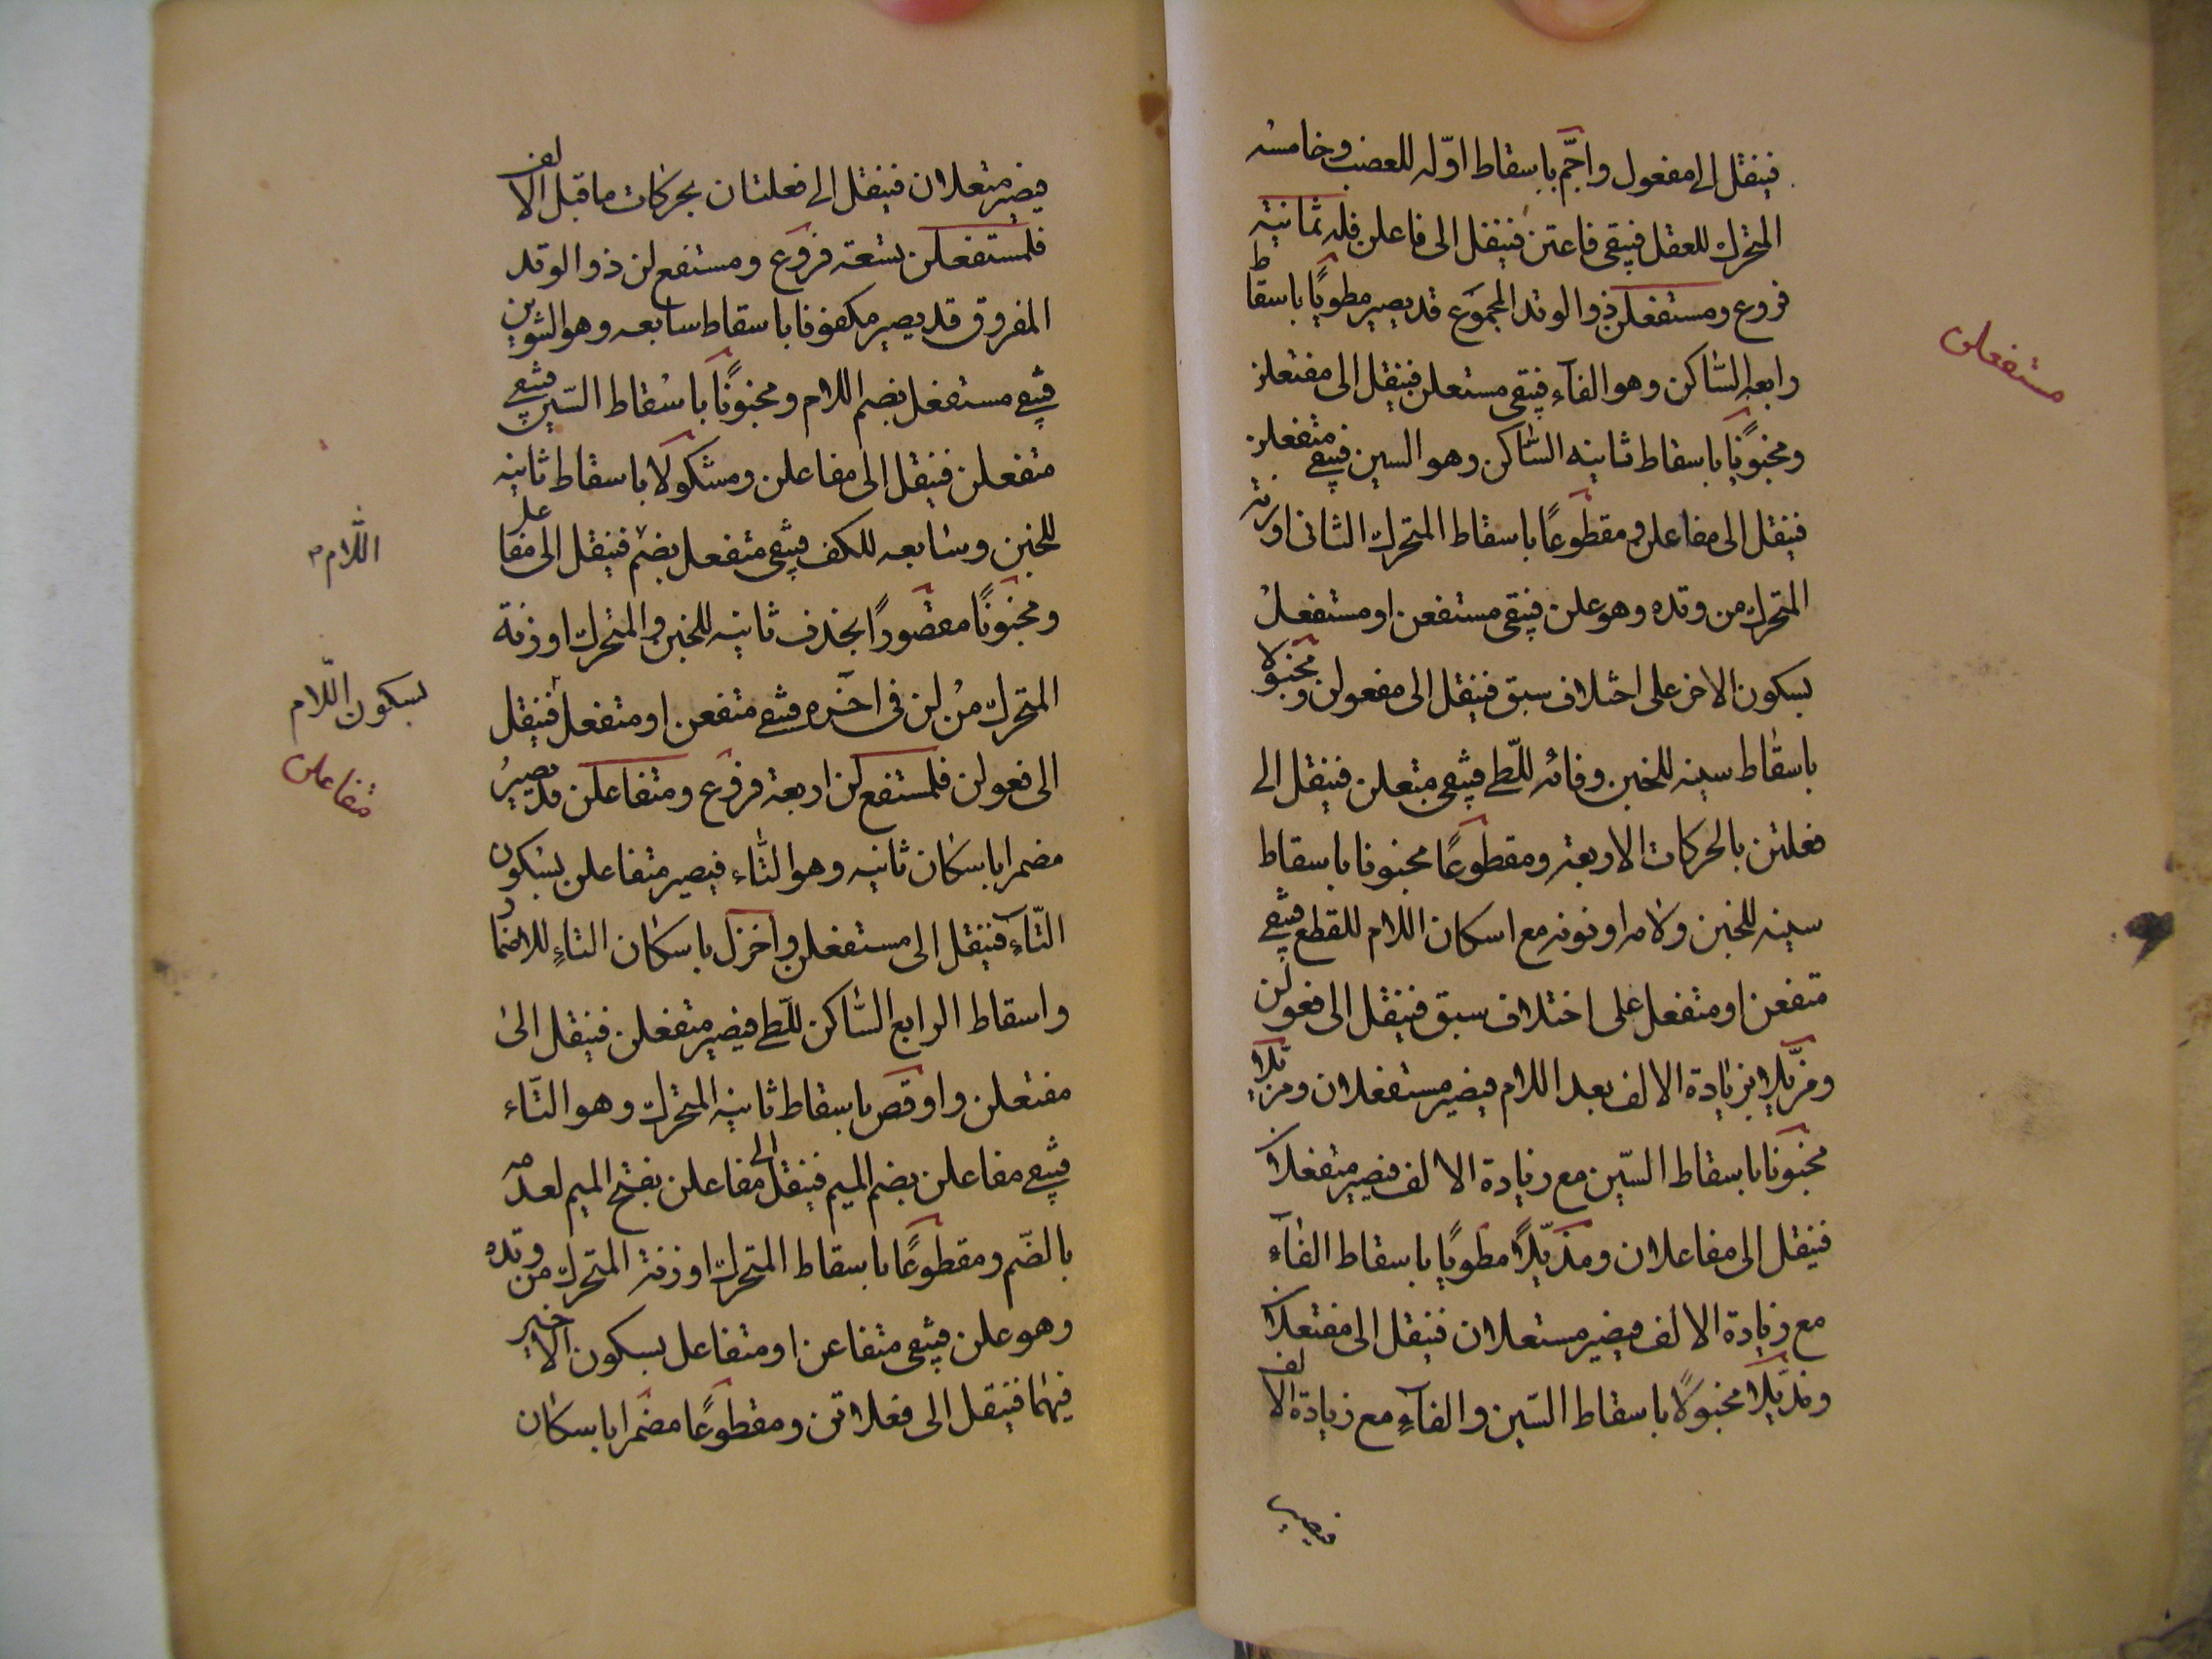 فينقل الى مفعول واجّم باسقاط اوّله للعضب وخامسه
المتحرك للعقل فيبقى فاعتن فينقل الى فاعلن فله ثمانية
فروع ومستفعلن ذو الوتد المجموع قد يصير مطويًا باسقاط
رابعه السّاكن وهو الفآء فيبقى مستعلن فينقل الى مفتعلن
ومخبونًا باسقاط ثانيه السّاكن وهو السين فيبقى متفعلن
فينقل الى مفاعلن ومقطوعًا باسقاط المتحرك الثانى او زنة
المتحرك من وتده وهو علن فيبقى مستفعن او مستفعلْ
بسكون الاخر على اختلاف سبق فينقل الى مفعولن ومخبولا
باسقاط سينه للخبن وفائه للطّى فيبقى متعلن فينقل الى
فعلتن بالحركات الاربعة ومقطوعًا مخبونا باسقاط
سينه للخبن ولامه او نونه مع اسكان اللام للقطع فيبقى
متفعن او متفعل على اختلاف سبق فينقل الى فعولن
ومزيّلا بزيادة الالف بعد اللام فيصير مستفعلان ومزيّلا
مخبونا باسقاط السّين مع زيادة الالف فيصير متفعلان
فينقل الى مفاعلان ومذيّلًا مطويًا باسقاط الفآء
مع زيادة الالف فيصير مستعلان فينقل الى مفتعلان
ومذيّلا مخبولًا باسقاط السّين والفآء مع زيادة الالف
فيصير
مستفعلن
فيصير متعلان فينقل الى فعلتان بحركات ما قبل الالف
فلمستفعلن تسعة فروع ومستفع لن ذو الوتد
المفروق قد يصير مكفوفا باسقاط سابعه وهو النون
فيبقى مستفعل بضم اللام ومخبونًا باسقاط السّين فيبقى
متفعلن فينقل الى مفاعلن ومشكولا باسقاط ثانيه
للخبن وسابعه للكف فيبقى متفعل بضم فينقل الى مفاعل
اللّام
ومخبونًا مقصورًا بحذف ثانيه للخبن والمتحرك او زنة
المتحرك من لن فى اخره فيبقى متفعن او متفعل فينقل
بسكون اللّام
الى فعولن فلمستفع لن اربعة فروع ومتفاعلن قد يصير
متفاعلن
مضمرا باسكان ثانيه وهو التّاء فيصير متفاعلن بسكون
التّآء فينقل الى مستفعلن واخزل باسكان التاء للاضمار
واسقاط الرابع السّاكن للطّى فيصير متفعلن فينقل الى
مفتعلن واوقص باسقاط ثانيه المتحرك وهو التّاء
فيبقى مفاعلن بضم الميم فينقل الى مفاعلن بفتح الميم لعدمه
بالضّم ومقطوعًا باسقاط المتحرك او زنة المتحرك من وتده
وهو علن فيبقى متفاعن او متفاعل بسكون الاخير
فيهما فينقل الى فعلاتن ومقطوعًا مضمرا باسكان